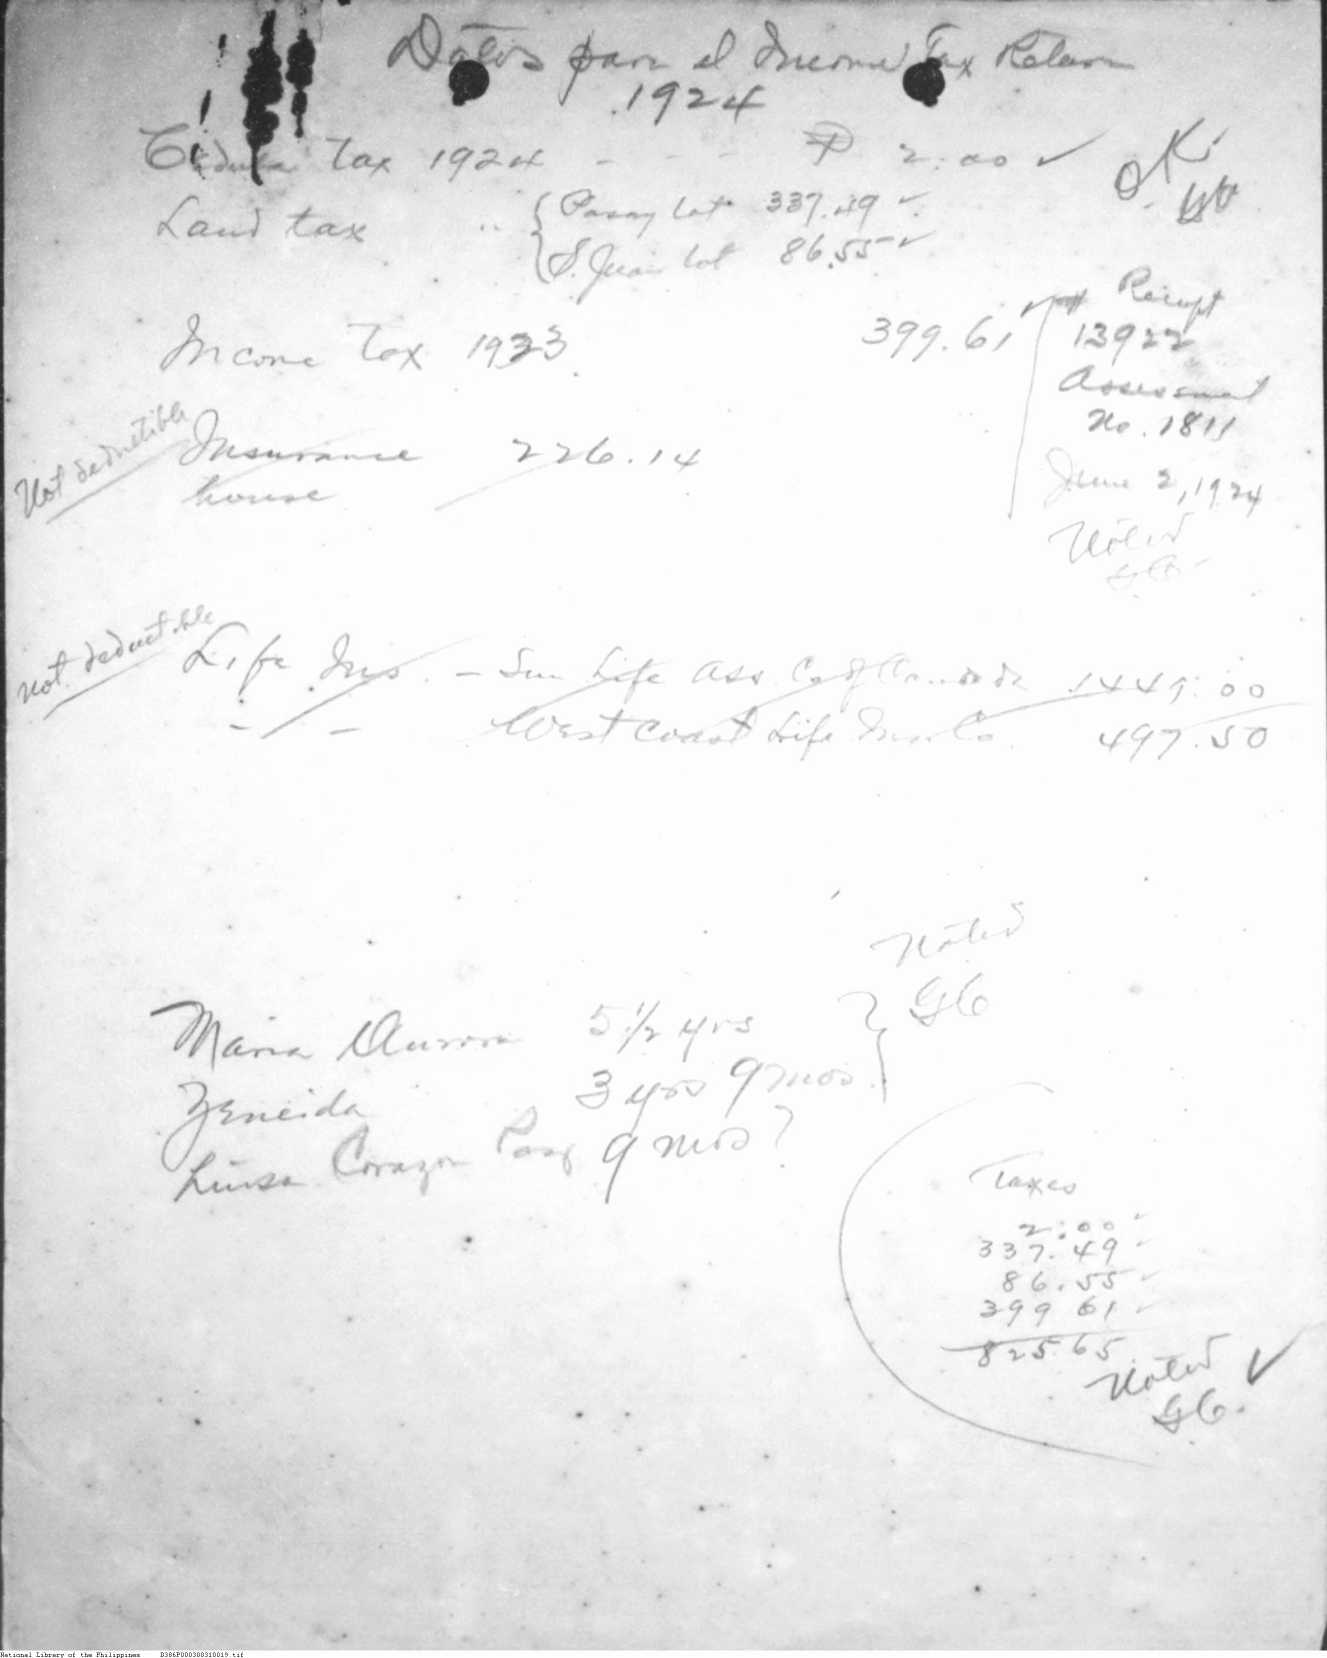 Datos para el Income Tax Return
1924
Cedula Tax 1924 - - - ₱ 2.00 ✓
O.K.
Land tax " { Pasay lot 337.49 ✓
S. Juan lot 86.55 ✓
Income Tax 1923 399.61 ✓
# Receipt
13922
Assessment
No. 1811
June 2, 1924
Noted
GC
Not deductible
Insurance 226.14
house
Not deductible
Life Ins. - Sun Life Ass Co of Canada 1449.00
- " - West Coast Life Ins. Co. 497.50
Noted
GC
Maria Aurora 5 1/2 yrs
Zeneida 3 yrs 9 mos
Luisa Corazon Paz 9 mos?
Taxes
2.00 ✓
337.49 ✓
86.55 ✓
399 61 ✓
825.65
Noted ✓
GC.
National Library of the Philippines B386P000300310019.tif